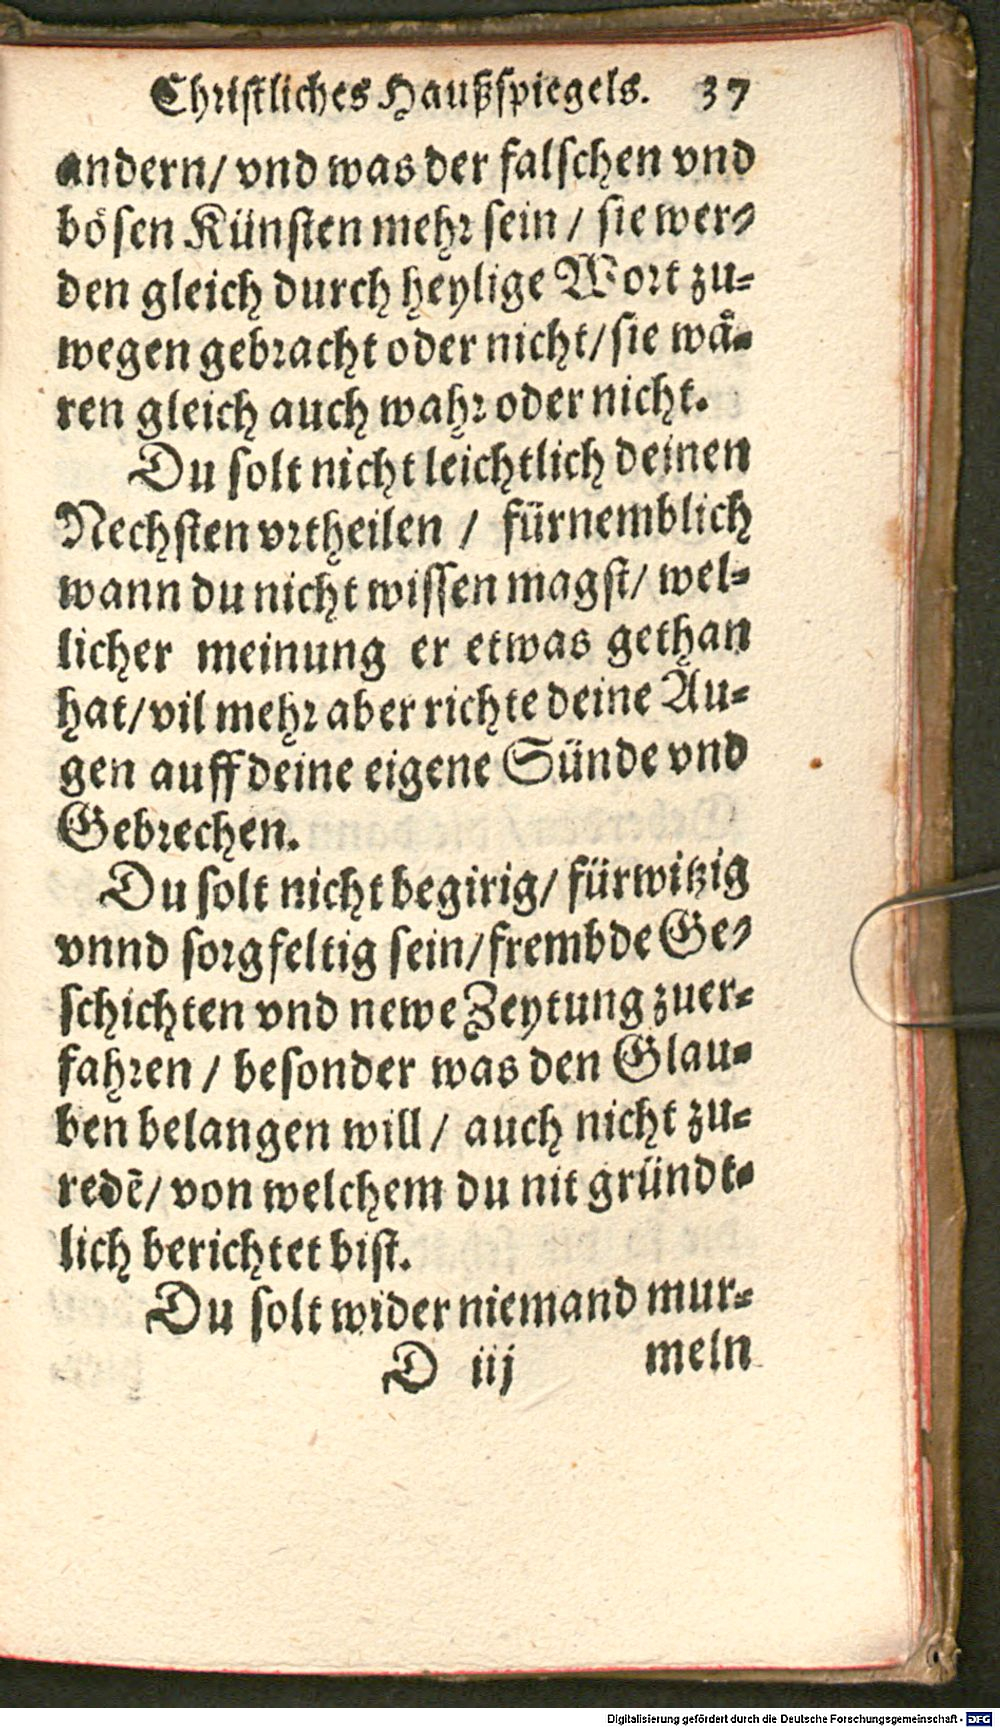 Christliches Haußspiegels. 37
andern/ vnd was der falschen vnd
bösen Künsten mehr sein / sie wer-
den gleich durch heylige Wort zu-
wegen gebracht oder nicht/ sie wä-
ren gleich auch wahr oder nicht.
Du solt nicht leichtlich deinen
Nechsten vrtheilen / fürnemblich
wann du nicht wissen magst/ wel-
licher meinung er etwas gethan
hat/ vil mehr aber richte deine Au-
gen auff deine eigene Sünde vnd
Gebrechen.
Du solt nicht begirig/ fürwitzig
vnnd sorgfeltig sein/ frembde Ge-
schichten vnd newe Zeytung zuer-
fahren / besonder was den Glau-
ben belangen will / auch nicht zu-
redē/ von welchem du nit gründt-
lich berichtet bist.
Du solt wider niemand mur-
D iij meln
Digitalisierung gefördert durch die Deutsche Forschungsgemeinschaft - DFG